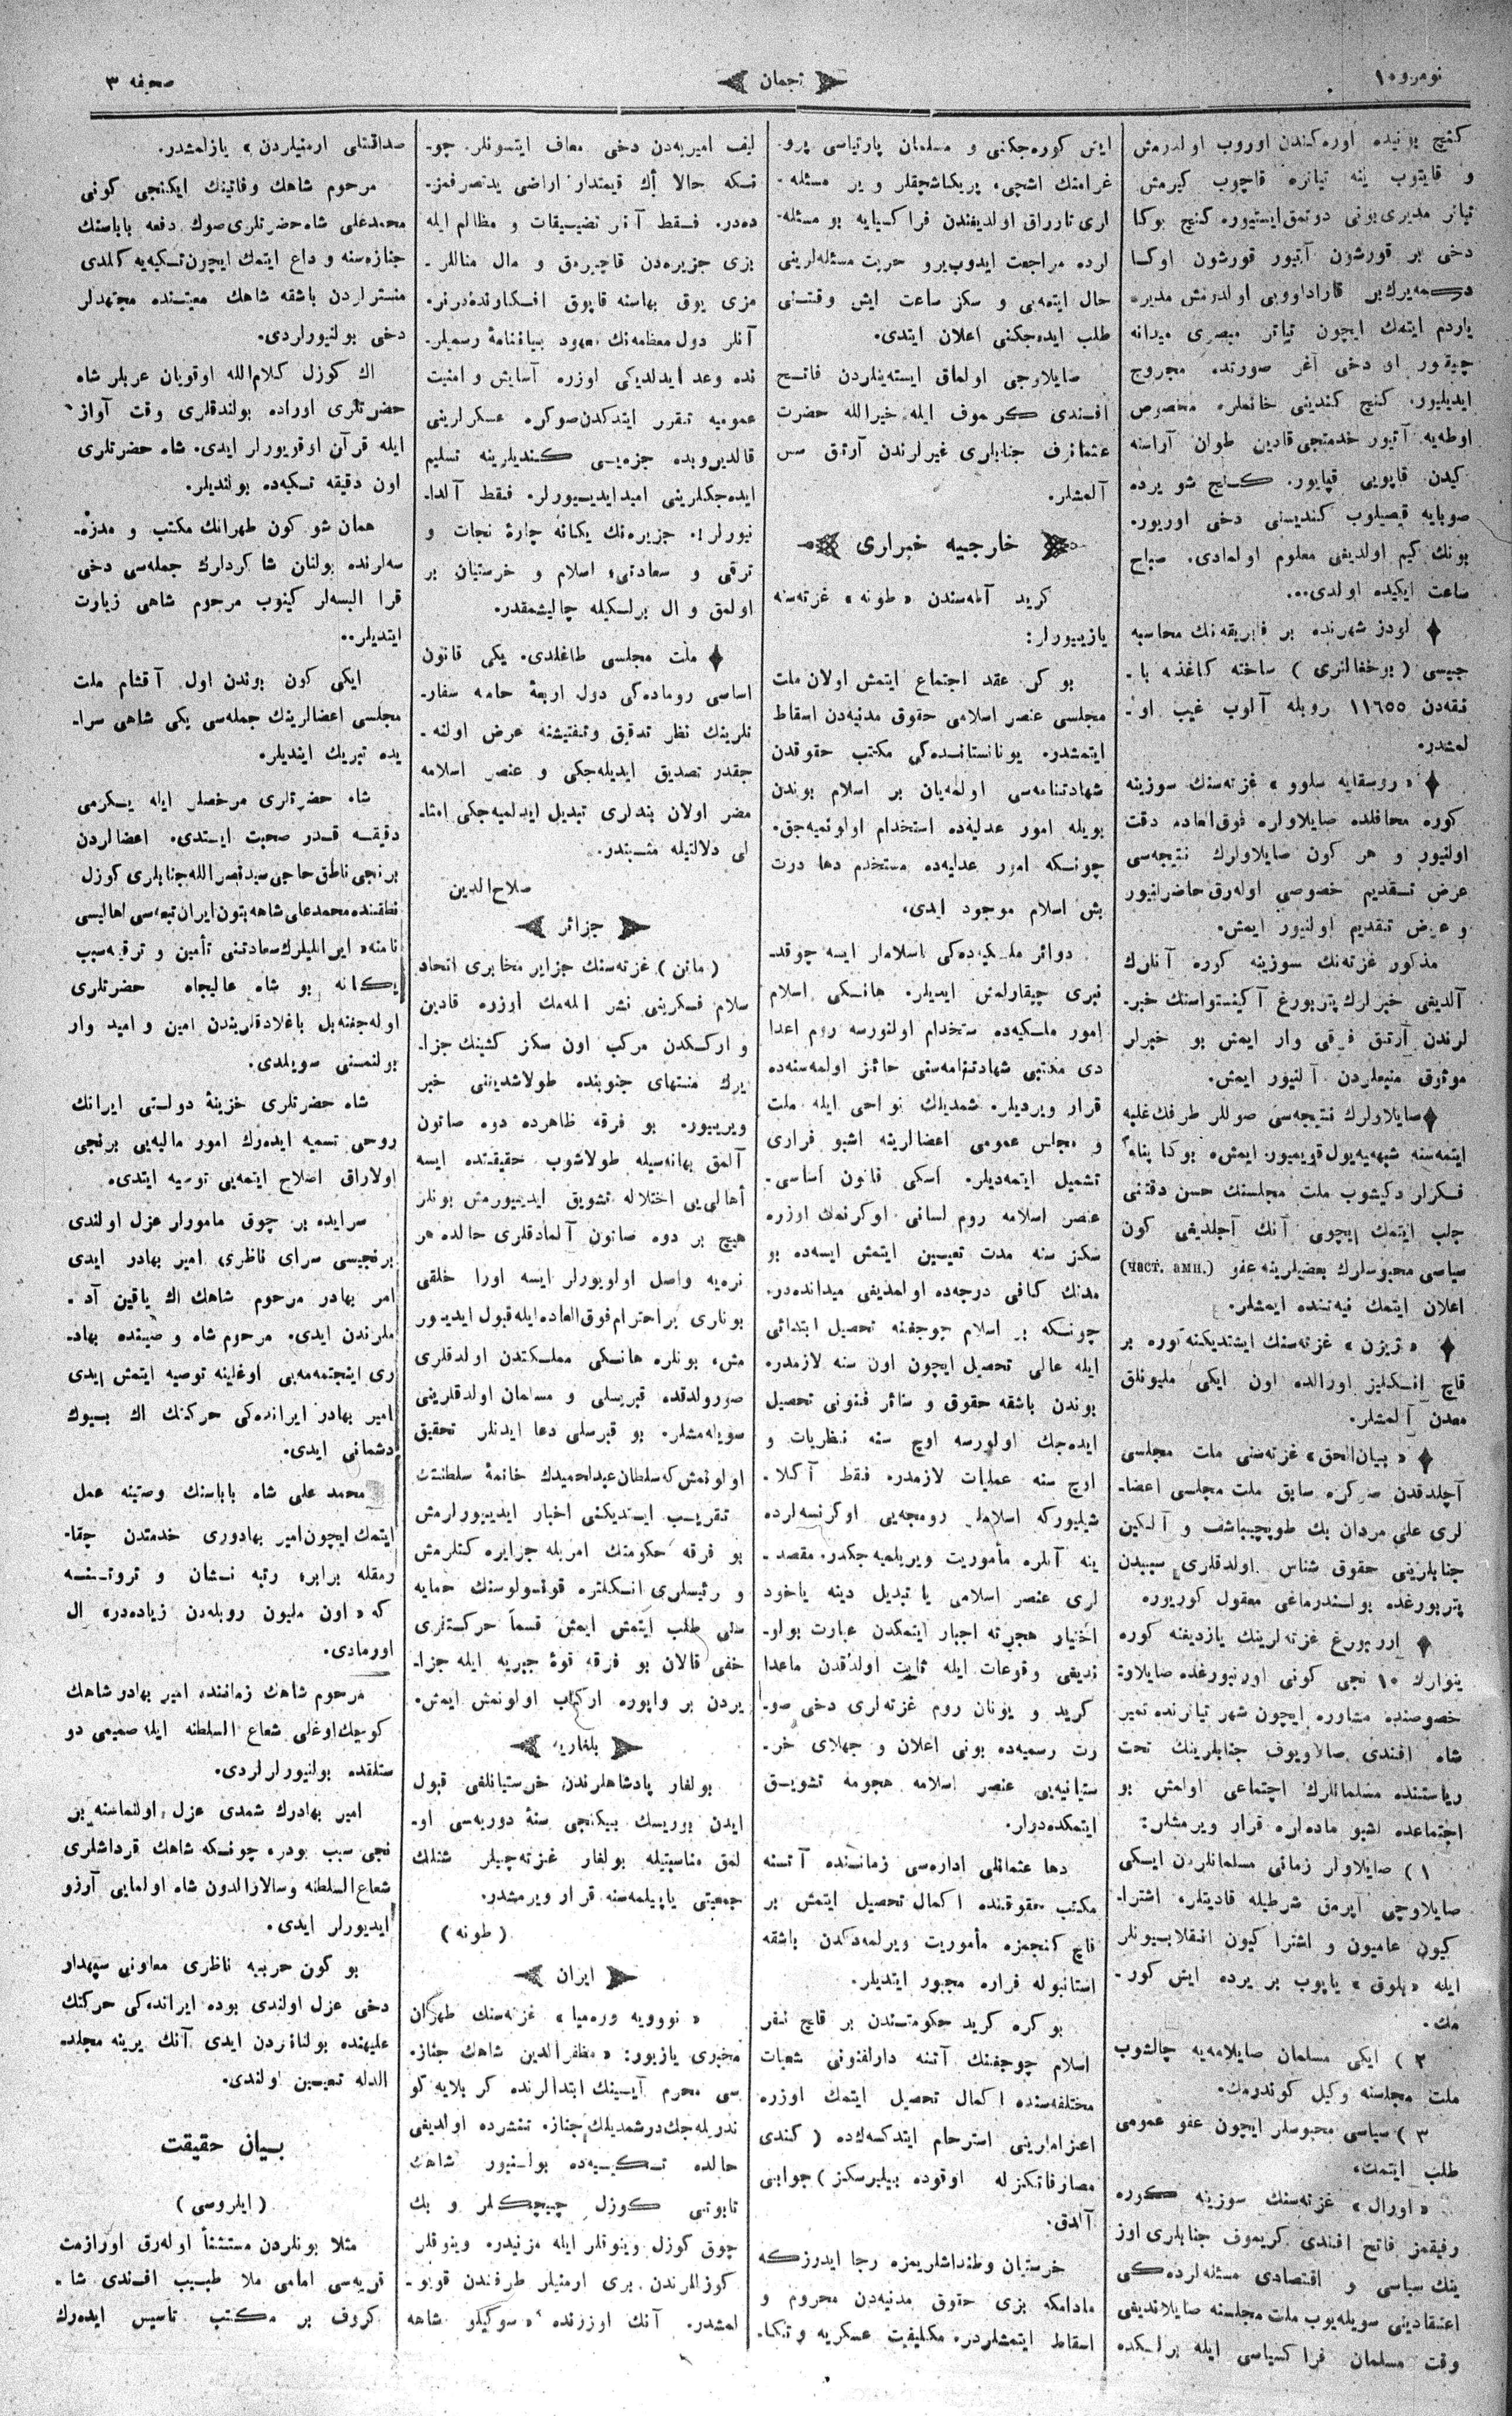 نومرو ۱۰
ترجمان
صحیفه ۳
کنچ بونیده اوره‌کندن اوروب اولدرمش
و قایتوب ینه تیاتره قاچوب کیرمش
تیاتر مدیری بونی دوتمق ایستیوره کنچ بوکا
دخی بر قورشون آتیور قورشون اوکا
یاردم ایتمك ایچون تیاتر مبصری میدانه
چیقور او دخی آغر صورتده مجروح
ایدیلیور. کنچ کندینی خانملره مخصوص
اوطه‌یه آتیور خدمتجی قادین طوان آراسنه
کیدن قاپویی قپایور. کنج شو یرده
صوبایه قیصیلوب کندیسنی دخی اوریور.
بونك کیم اولدیغی معلوم اولمادی. صباح
ساعت ایکیده اولدی...
لودز شهرنده بر فابریقه‌نك محاسبه
جیسی (بوخغالتری) ساخته کاغذه با-
نقه‌دن ۱۱٦٥٥ روبله آلوب غیب او-
لمشدر.
«روسقایه سلوو» غزته‌سنك سوزینه
کوره محافلده صایلاولره فوق‌العاده دقت
اولنیور و هر کون صایلاولرك نتیجه‌سی
عرض تقدیم خصوصی اوله‌رق حاضرلنیور
و عرض تقدیم اولنیور ایمش.
مذکور غزته‌نك سوزینه کوره آنلرك
آلدیغی خبرلرك پتربورغ آکینستواسنك خبر-
لرندن آرتق فرقی وار ایمش بو خبرلر
موثوق منبعلردن آلنیور ایمش.
صایلاولرك نتیجه‌سی صوللر طرفك غلبه
ایتمه‌سنه شبهه‌یه یول قویمیور ایمش. بوکا بناءً
فکرلر دکیشوب ملت مجلسنك حسن دقتنی
جلب ایتمك ایچون آنك آچلدیغی کون
سیاسی محبوسلرك بعضیلرینه عفو (част. амн.)
اعلان ایتمك نیتنده ایمشلر.
«تریزن» غزته‌سنك ایشتدیکنه کوره بر
قاچ انکلیز اورالده اون ایکی ملیونلق
معدن آلمشلر.
«بیان الحق» غزته‌سی ملت مجلسی
آچلدقدن صوکره سابق ملت مجلسی اعضا-
لری علی مردان بك طوپچیباشف و آلکین
جنابلرینی حقوق شناس اولدقلری سببدن
پتربورغده بولندرماغی معقول کوریوره
اورنبورغ غزته‌لرینك یازدیغنه کوره
ینوارك ۱۰ نجی کونی اورنبورغده صایلاو
خصوصنده مشاوره ایچون شهر تیاترنده تمیر
شاه افندی صالاویوف جنابلرینك تحت
ریاستنده مسلمانلرك اجتماعی اولمش بو
اجتماعده اشبو ماده‌لره قرار ویرمشلر:
۱) صایلاولر زمانی مسلمانلردن ایکی
صایلاوچی آیرمق شرطیله قادیتلره اشترا-
کیون عامیون و اشتراکیون انقلابیونلر
ایله «بلوق» یاپوب بر یرده ایش کور-
مك.
۲) ایکی مسلمان صایلامه‌یه چالشوب
ملت مجلسنه وکیل کوندرمك.
۳) سیاسی محبوسلر ایچون عفو عمومی
طلب ایتمك.
«اورال» غزته‌سنك سوزینه کوره
رفیقمز فاتح افندی کریموف جنابلری اوز
ینك سیاسی و اقتصادی مسئله‌لرده‌کی
اعتقادینی سویله‌یوب ملت مجلسنه صایلاندیغی
وقت مسلمان فراکسیاسی ایله برلکده
ایش کوره‌جکنی و مسلمان پارتیاسی پرو-
غرامنك اشچی، پریکاشچقلر و یر مسئله-
لری تارراق اولدیغندن فراکسیایه بو مسئله-
لرده مراجعت ایدوب یرو حریت مسئله‌لرینی
حال ایتمه‌یی و سکز ساعت ایش وقتنی
طلب ایده‌جکنی اعلان ایتدی.
صایلاوجی اولماق ایسته‌ینلردن فاتح
افندی کریموف ایله خیرالله حضرت
عثمانوف جنابلری غیرلرندن آرتق سس
آلمشلر.
خارجیه خبرلری
کرید آطه‌سندن «طونه» غزته‌سنه
یازییورلر:
بو کره عقد اجتماع ایتمش اولان ملت
مجلسی عنصر اسلامی حقوق مدنیه‌دن اسقاط
ایتمشدر. یونانستانده‌کی مکتب حقوقدن
شهادتنامه‌سی اولمه‌یان بر اسلام بوندن
بویله امور عدلیه‌ده استخدام اولونمیه‌جق.
چونسکه امور عدلیه‌ده مستخدم دها درت
بش اسلام موجود ایدی.
دوائر ملکیه‌ده‌کی اسلاملر ایسه چوقد-
نبری چیقارلمش ایدیلر. هانکی اسلام
امور ملکیه‌ده ستخدام اولنورسه روم اعدا
دی مکتبی شهادتنامه‌سنی حائز اولمه‌سنه‌ده
قرار ویردیلر. شمدیلك نواحی ایله ملت
و مجلس عمومی اعضالرینه اشبو قراری
تشمیل ایتمه‌دیلر. اسکی قانون اساسی-
عنصر اسلامه روم لسانی اوکرنمك اوزره
سکز سنه مدت تعیین ایتمش ایسه‌ده بو
مدتك کافی درجه‌ده اولمدیغی میدانده‌در.
چونسکه بر اسلام چوجغنه تحصیل ابتدائی
ایله عالی تحصیل ایچون اون سنه لازمدره
بوندن باشقه حقوق و سائر فنونی تحصیل
ایده‌جك اولورسه اوچ سنه نظریات و
اوچ سنه عملیات لازمدره فقط آکلا-
شیلیورکه اسلاملر رومجه‌یی اوکرنسه‌لرده
ینه آنلره مأموریت ویریلمیه‌جکدر. مقصد-
لری عنصر اسلامی یا تبدیل دینه یاخود
اختیار هجرته اجبار ایتمکدن عبارت بولو-
ندیغی وقوعات ایله ثابت اولدقدن ماعدا
کرید و یونان روم غزته‌لری دخی صو-
رت رسمیه‌ده بونی اعلان و جهلای خر-
ستیانیه‌یی عنصر اسلامه هجومه تشویق
ایتمکده‌درلر.
دها عثمانلی اداره‌سی زماننده آتنه
مکتب حقوقنده اکمال تحصیل ایتمش بر
قاچ کنجمزه مأموریت ویرلمه‌دکدن باشقه
استانبوله فراره مجبور ایتدیلر.
بو کره کرید حکومتندن بر قاچ نفر
اسلام چوجغنك آتنه دارلفنونی شعبات
مختلفه‌سنده اکمال تحصیل ایتمك اوزره
اعزاملرینی استرحام ایتدکسه‌ده (کندی
مصارفاتکزله اوقوده بیلیرسکز) جوابنی
آلدق.
خرستیان وطنداشلریمزه رجا ایدرزکه
مادامکه بزی حقوق مدنیه‌دن محروم و
اسقاط ایتمشلردره مکلفیت عسکریه و تکا-
لیف امیریه‌دن دخی معاف ایتسونلر. چو-
نسکه حالا أك قیمتدار اراضی یدتصرفمز-
ده‌در. فقط آنلر تضییقات و مظالم ایله
بزی جزیره‌دن قاچیرمق و مال منالر-
مزی یوق بهاسنه قاپوق افکارنده‌درلر.
آنلر دول معظمه‌نك معهود بیاننامهٔ رسمیلر-
نده وعد ایدلدیکی اوزره آسایش و امنیت
عمومیه تقرر ایتدکدن صوکره عسکرلرینی
قالدیروبده جزیره‌یی کندیلرینه تسلیم
ایده‌جکلرینی امید ایدییورلر. فقط آلدا-
نیورلر!. جزیره‌نك یکانه چارهٔ نجات و
ترقی و سعادتی، اسلام و خرستیان بر
اولمق و ال برلکیله چالیشمقدر.
ملت مجلسی طاغلدی. یکی قانون
اساسی روماده‌کی دول اربعهٔ حامه سفار-
تلرینك نظر تدقیق و تفتیشنه عرض اولنه-
جقدر تصدیق ایدیله‌جکی و عنصر اسلامه
مضر اولان بندلری تبدیل ایدلمیه‌جکی امثا-
لی دلالتیله مثبتدر.
صلاح‌الدین
جزائر
(ماتن) غزته‌سنك جزایر مخابری اتحاد
سلام فکرینی نشر ایله‌مك اوزره قادین
و ارککدن مرکب اون سکز کشینك جزا-
یرك منتهای جنوبنده طولاشدیغنی خبر
ویرییور. بو فرقه ظاهرده دوه صاتون
آلمق بهانه‌سیله طولاشوب حقیقتده ایسه
أهالی‌یی اختلاله تشویق ایدییورمش بونلر
هیچ بر دوه صاتون آلمادقلری حالده هر
نره‌یه واصل اولویورلر ایسه اورا خلقی
بونلری بر احترام فوق‌العاده ایله قبول ایدییور
مش. بونلره هانکی مملکتدن اولدقلری
صورولدقده قبریسلی و مسلمان اولدقلرینی
سویله‌مشلر. بو قبرسلی دعا ایدنلر تحقیق
اولونمش که سلطان عبدالحمیدك خاتمهٔ سلطنتك
تقریب ایتدیکنی اخبار ایدییورلرمش
بو فرقه حکومتك امریله جزایره کتلرمش
و رئیسلری انکلتره قونسولوسنك حمایه
سنی طلب ایتمش ایمش قسماً حرکتلری
خفی قالان بو فرقه قوهٔ جبریه ایله جزا-
یردن بر واپوره ارکاب اولونمش ایمش.
بلغاریه
بولغار پادشاهلرندن خرستیانلغی قبول
ایدن بوریسك بیکنجی سنهٔ دوریه‌سی او-
لمق مناسبتیله بولغار غزته‌چیلر شنلك
جمعیتی یاپیلمه‌سنه قرار ویرمشدر.
(طونه)
ایران
«نوویه وره‌میا» غزته‌سنك طهران
مخبری یازیور: «مظفرالدین شاهك جناز-
سی محرم آیینك ابتدالرنده کربلایه کو
ندریله‌جك در شمدیلك جنازه تنشرده اولدیغی
حالده تکیه‌ده بولنیور شاهك
تابوتی کوزل چیچکلر و بك
چوق کوزل وینوقلر ایله مزیندره وینوقلر
کوزللرندن بری ارمنیلر طرفندن قویو-
لمشدر. آنك اوزرنده «سوکیلو شاهه
صداقتلی ارمنیلردن» یازلمشدر.
مرحوم شاهك وفاتینك ایکنجی کونی
محمدعلی شاه حضرتلری صوك دفعه باباسنك
جنازه‌سنه وداع ایتمك ایچون تکیه‌یه کلدی
منسترلردن باشقه شاهك معیتنده مجتهدلر
دخی بولنیورلردی.
اك کوزل کلام‌الله اوقویان عربلر شاه
حضرتلری اوراده بولندقلری وقت آواز
ایله قرآن اوقریورلر ایدی. شاه حضرتلری
اون دقیقه تکیه‌ده بولندیلر.
همان شو کون طهرانك مکتب و مدر-
سه‌لرنده بولنان شاکردلرك جمله‌سی دخی
قرا البسه‌لر کینوب مرحوم شاهی زیارت
ایتدیلر..
ایکی کون بوندن اول آقشام ملت
مجلسی اعضالرینك جمله‌سی یکی شاهی سرا-
یده تبریك ایتدیلر.
شاه حضرتلری مرخصلر ایله یکرمی
دقیقه قدر صحبت ایتدی. اعضالردن
برنجی ناطق حاجی سید نصرالله جنابلری کوزل
نطقنده محمدعلی شاهه بتون ایران تبعه‌سی اهالیسی
نامنه «ایرانلیلرك سعادتنی تأمین و ترقیه سبب
یکانه بو شاه عالیجاه حضرتلری
اوله‌جغنه‌بل باغلادقلریندن امین و امید وار
بولنمسنی سویلدی.
شاه حضرتلری خزینهٔ دولتی ایرانك
روحی تسمیه ایده‌رك امور مالیه‌یی برنجی
اولاراق اصلاح ایتمه‌یی توصیه ایتدی.
سرایده بر چوق مامورلر عزل اولندی
برنجیسی سرای ناظری امیر بهادر ایدی
امر بهادر مرحوم شاهك اك یاقین آد-
ملرندن ایدی. مرحوم شاه وصیتنده بهاد-
ری اینجتمه‌مه‌یی اوغلینه توصیه ایتمش ایدی
امیر بهادر ایرانده‌کی حرکتك اك بیوك
دشمانی ایدی.
محمد علی شاه باباسنك وصیتنه عمل
ایتمك ایچون امیر بهادوری خدمتدن چقا-
رمقله برابر، رتبه نشان و ثروتنه
که «اون ملیون روبله‌دن زیاده‌در» ال
اوورمادی.
مرحوم شاهك زماننده امیر بهادر شاهك
کوچك اوغلی شعاع السلطنه ایله صمیمی دو
ستلقده بولنیورلردی.
امیر بهادرك شمدی عزل اولنماسنه بر
نجی سبب بودره چونسکه شاهك قرداشلری
شعاع‌السلطنه وسالارالدون شاه اولمایی آرزو
ایدیورلر ایدی.
بو کون حربیه ناظری معاونی سپهدار
دخی عزل اولندی بوده ایرانده‌کی حرکتك
علیهنده بولنانلردن ایدی آنك یرینه مجلد-
الدله تعیین اولندی.
بیان حقیقت
(ایلروسی)
مثلا بونلردن مستثنأ اوله‌رق اورازمت
قریه‌سی امامی ملا طبیب افندی شا-
کروف بر مکتب تأسیس ایده‌رك